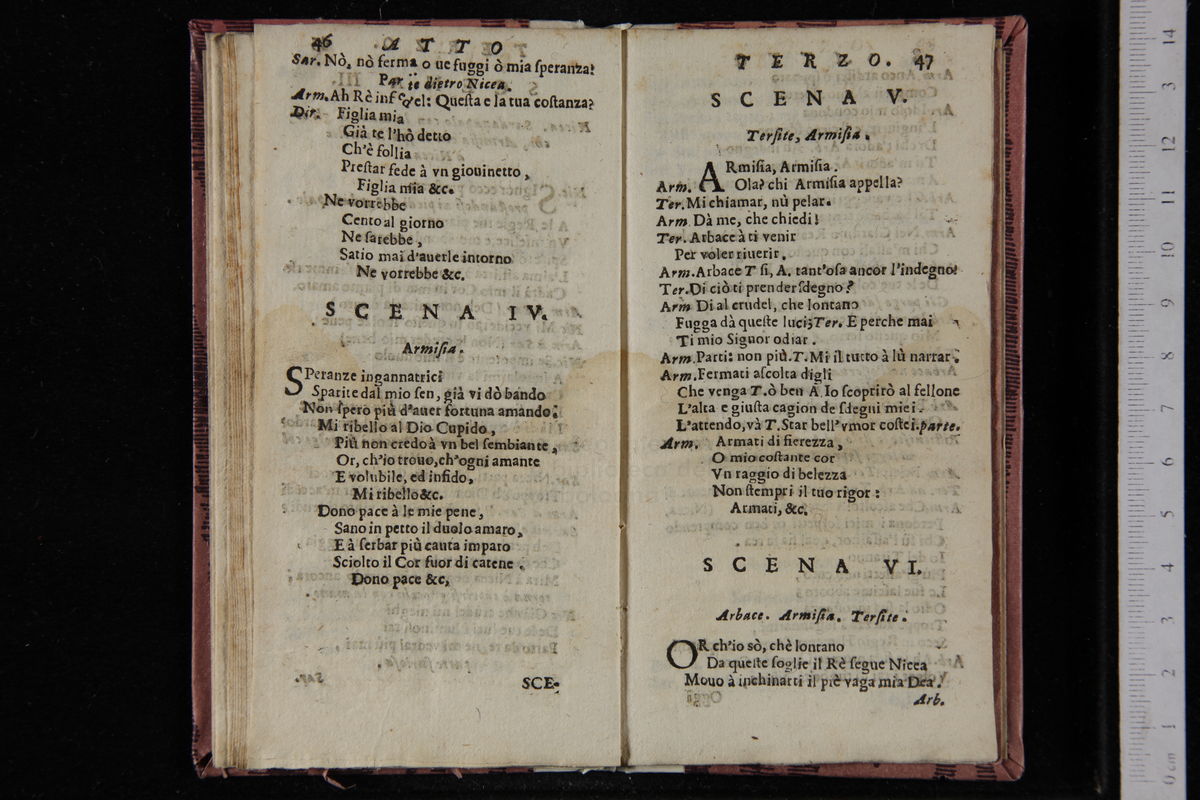 46 ATTO
Sar. Nò, nò ferma o ue fuggi ò mia ſperanza!
Par te dietro Nicea.
Arm. Ah Rè infedel: Queſta e la tua coſtanza?
Dir. Figlia mia
Già te l'hò detto
Ch'è follia
Preſtar fede à vn giouinetto,
Figlia mia &c.
Ne vorrebbe
Cento al giorno
Ne ſarebbe,
Satio mai d'auerle intorno
Ne vorrebbe &c.
SCENA IV.
Armiſia.
SPeranze ingannatrici
Sparite dal mio ſen, già vi dò bando
Non ſpero più d'auer fortuna amando.
Mi ribello al Dio Cupido,
Più non credo à vn bel ſembiante,
Or, ch'io trouo, ch'ogni amante
E volubile, ed infido,
Mi ribello &c.
Dono pace à le mie pene,
Sano in petto il duolo amaro,
E à ſerbar più cauta imparo
Sciolto il Cor fuor di catene.
Dono pace &c,
SCE-
TERZO. 47
SCENA V.
Terſite, Armiſia.
ARmiſia, Armiſia.
Arm. Ola? chi Armiſia appella?
Ter. Mi chiamar, nù pelar.
Arm Dà me, che chiedi!
Ter. Arbace à ti venir
Per voler riuerir.
Arm. Arbace T ſi, A. tant'oſa ancor l'indegno!
Ter. Di ciò ti prender ſdegno?
Arm Di al crudel, che lontano
Fugga dà queſte luci; Ter. E perche mai
Ti mio Signor odiar.
Arm. Parti: non più. T. Mi il tutto à lù narrar.
Arm. Fermati aſcolta digli
Che venga T. ò ben A. Io ſcoprirò al fellone
L'alta e giuſta cagion de ſdegni miei.
L'attendo, và T. Star bell'vmor coſtei. parte.
Arm. Armati di fierezza,
O mio coſtante cor
Vn raggio di belezza
Non ſtempri il tuo rigor:
Armati, &c.
SCENA VI.
Arbace. Armiſia. Terſite.
OR ch'io sò, chè lontano
Da queſte ſoglie il Rè ſegue Nicea
Mouo à inchinarti il piè vaga mia Dea.
Arb.